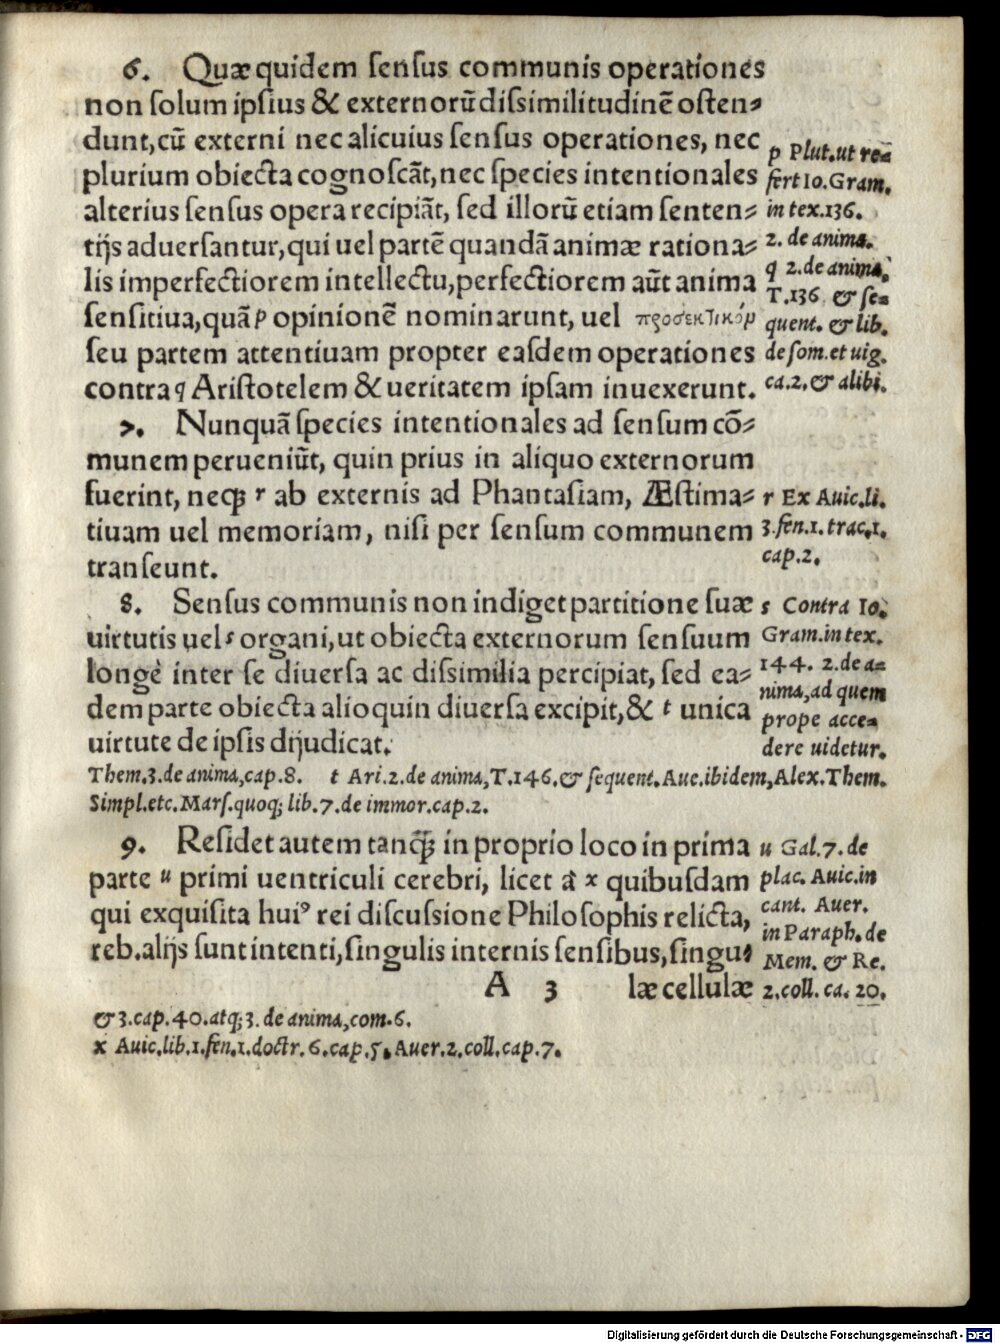 6. Quæ quidem sensus communis operationes
non solum ipsius & externorū dissimilitudinē osten⸗
dunt, cū externi nec alicuius sensus operationes, nec
plurium obiecta cognoscāt, nec species intentionales
alterius sensus opera recipiāt, sed illorū etiam senten⸗
tijs aduersantur, qui uel partē quandā animæ rationa⸗
lis imperfectiorem intellectu, perfectiorem aūt anima
sensitiua, quā p opinionē nominarunt, uel προσεκτικόν
seu partem attentiuam propter easdem operationes
contra q Aristotelem & ueritatem ipsam inuexerunt.
p Plut. ut re⸗
fert Io. Gram.
in tex. 136.
2. de anima.
q 2. de anima,
T. 136 & se⸗
quent. & lib.
de som. et uig.
ca. 2. & alibi.
7. Nunquā species intentionales ad sensum cō⸗
munem perueniūt, quin prius in aliquo externorum
fuerint, neq; r ab externis ad Phantasiam, Æstima⸗
tiuam uel memoriam, nisi per sensum communem
transeunt.
r Ex Auic. li.
3. fen. 1. trac. 1.
cap. 2.
8. Sensus communis non indiget partitione suæ
uirtutis uel s organi, ut obiecta externorum sensuum
longè inter se diuersa ac dissimilia percipiat, sed ea⸗
dem parte obiecta alioquin diuersa excipit, & t unica
uirtute de ipsis dijudicat.
s Contra Io.
Gram. in tex.
144. 2. de a⸗
nima, ad quem
prope acce⸗
dere uidetur.
Them. 3. de anima, cap. 8. t Ari. 2. de anima, T. 146. & sequent. Aue. ibidem, Alex. Them.
Simpl. etc. Mars. quoq; lib. 7. de immor. cap. 2.
9. Residet autem tanq̄; in proprio loco in prima
parte u primi uentriculi cerebri, licet à x quibusdam
qui exquisita huiꝰ rei discussione Philosophis relicta,
reb. alijs sunt intenti, singulis internis sensibus, singu⸗
A 3 læ cellulæ
u Gal. 7. de
plac. Auic. in
cant. Auer.
in Paraph. de
Mem. & Re.
2. coll. ca. 20.
& 3. cap. 40. atq; 3. de anima, com. 6.
x Auic. lib. 1. fen. 1. doctr. 6. cap. 5. Auer. 2. coll. cap. 7.
Digitalisierung gefördert durch die Deutsche Forschungsgemeinschaft - DFG